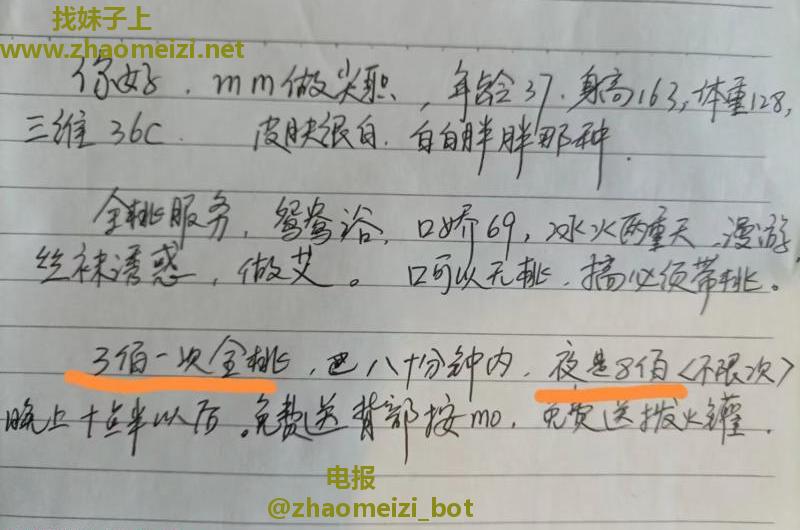 找妹子上
www.zhaomeizi.net
你好，mm做尖职，年龄37.身高163,体重128,
三维36C. 皮肤很白.白白胖胖那种.
全桃服务，鸳鸯浴，口娇69,冰火两重天.漫游
丝袜诱惑，做艾。口可以无桃.搞必须带桃。
3佰一次全桃，八十分钟内.夜是8佰<不限次>
晚上十点半以后。免费送背部按mo.免费送拨火罐.
电报
@zhaomeizi_bot